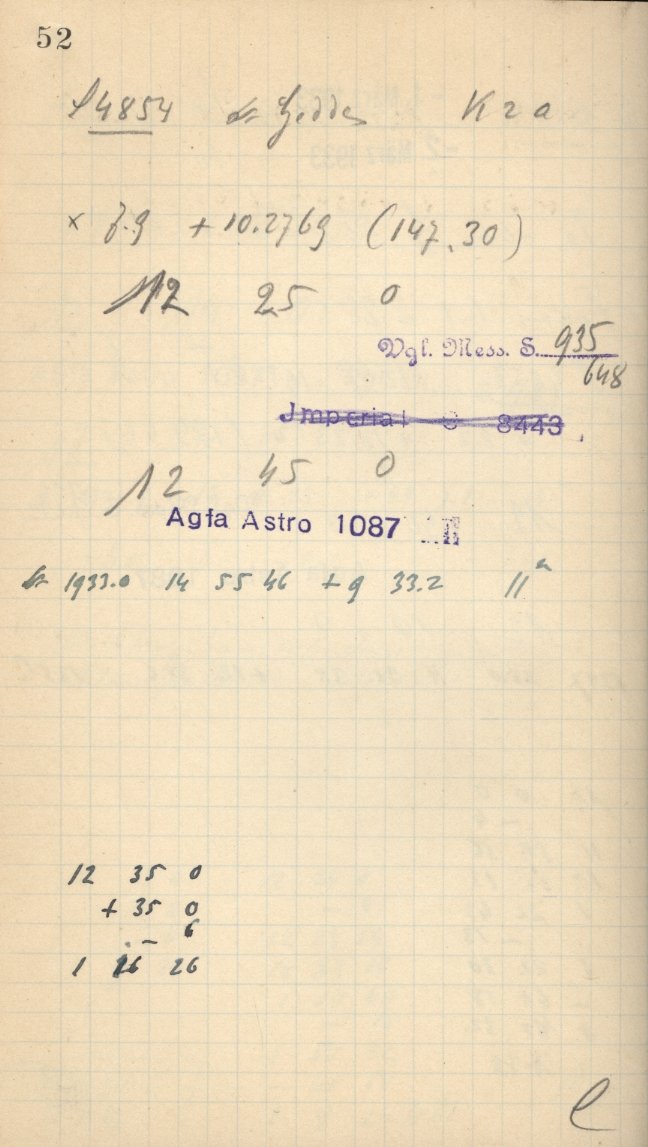 52
S4854 Geddes Kra
× 7.9 +10.2769 (147.30)
12 25 0
Vgl. Mess. S. 935/648
Jmperial S 8443
12 45 0
Agfa Astro 1087
1933.0 14 55 46 +9 33.2 11ᵐ
12 35 0
+ 35 0
- 6
1 16 26